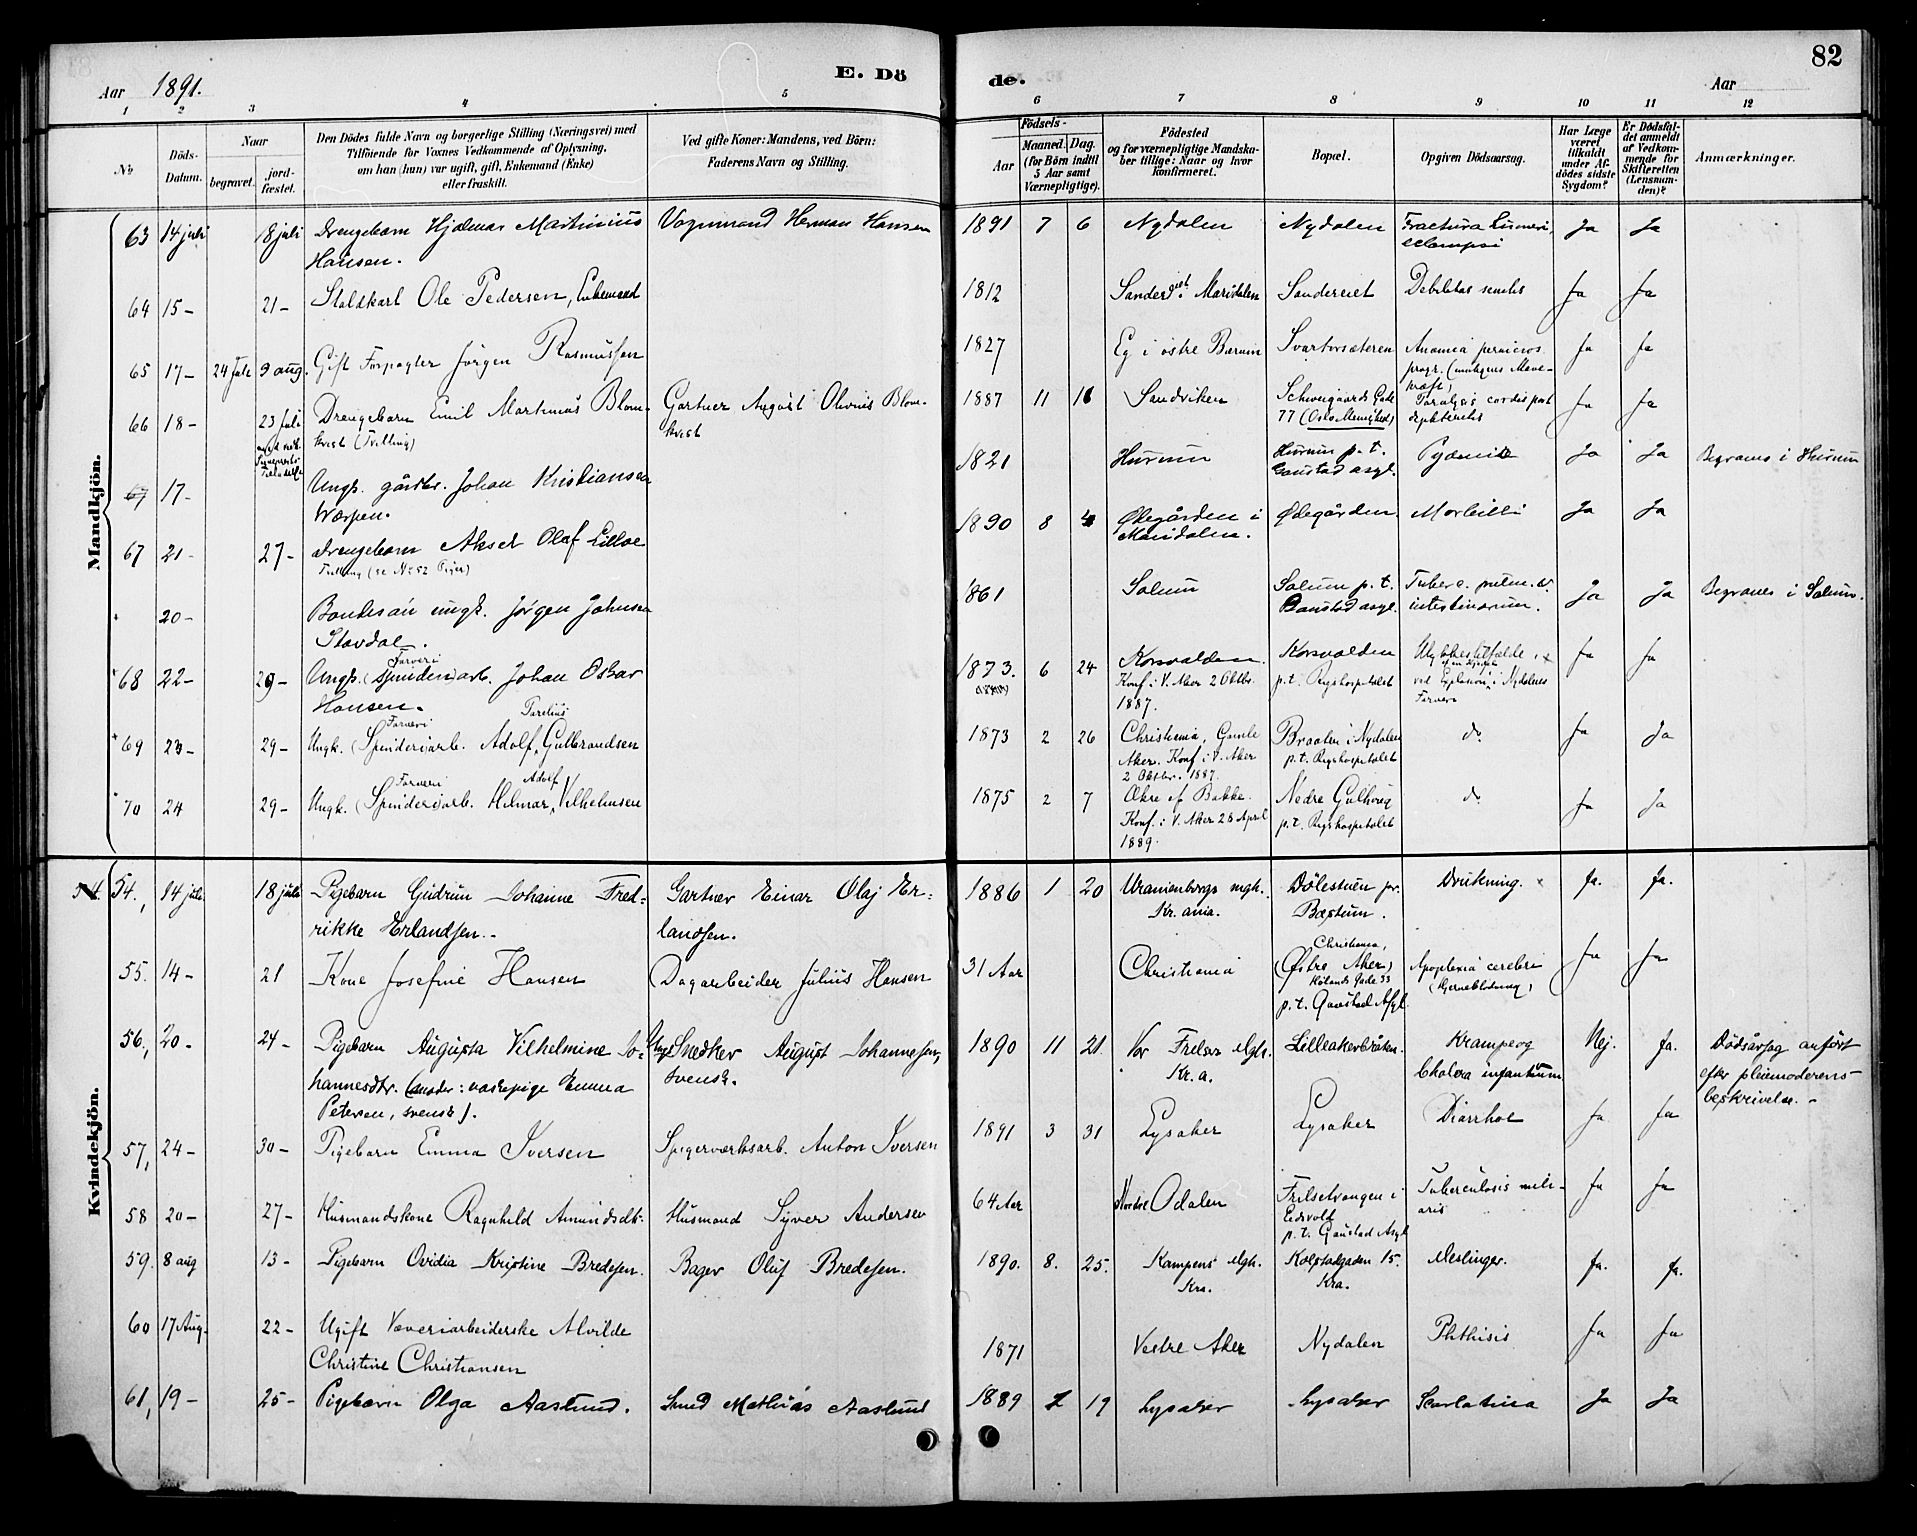 82
Aar 1891. E. Dö
de. Aar
1 2 3 4 5
6 7 8 9 10 11 12
No
Döds-
Datum.
Naar
begravet.
jord-
fæstet.
Den Dödes fulde Navn og borgerlige Stilling (Næringsvei) med
Tilföiende for Voxnes Vedkommende af Oplysning,
om han (hun) var ugift, gift, Enkemand (Enke)
eller fraskilt.
Ved gifte Koner: Mandens, ved Börn:
Faderens Navn og Stilling.
Födsels-
Aar
Maaned. Dag.
(for Börn indtil
5 Aar samt
Værnepligtige).
Födested
og for værnepligtige Mandska-
ber tillige: Naar og hvor
konfirmeret.
Bopæl.
Opgiven Dödsaarsag.
Har Læge
været
tilkaldt
under Af-
dödes sidste
Sygdom?
Er Dödsfal-
det anmeldt
af Vedkom-
mende for
Skifteretten
(Lensman-
den)?
Anmærkninger.
Mandkjön.
63 14 juli 18 juli Drengebarn Hjalmar Martinius Vognmand Herman Hansen 1891 7 6 Nydalen Nydalen Fractura Ja Ja
Hansen.
64 15 - 21 - Staldkarl Ole Pedersen, Enkemand 1812 Sandereiet Maridalen Sandereiet Debilitas senilis Ja Ja
65 17 - 24 Juli 9 aug. Gift Forpagter Jörgen Rasmussen 1827 Eg i östre Bærum Svartorsæteren Anæmia pernicios. Ja Ja
progr.
66 18 - 23 Juli Drengebarn Emil Martinius Blom- Gartner August Olvinis Blom- 1887 11 16 Sandviken Schweigaards Gade Paralysis cordis post Ja Ja
kvist (Tvilling) kvist 77 (Oslo Menighed)
67 17 - Ungk. gårdbr. Johan Kristiansen 1821 Hurum Hurum p. t. Pyæmie Ja Ja Begraves i Hurum
Wærpen. Gaustad asyl.
67 21 - 27 - Drengebarn Aksel Olaf Lilloe 1890 8 4 Ødegården i Ødegården Morbilli Ja Ja
Tvilling (se No 52 Piger) Maridalen.
20 - Bondesön ungk. Jörgen Johnsen 1861 Solum Solum p. t. Tuberc. pulm. et Ja Ja Begraves i Solum.
Stavdal. Gaustad asyl. intestinorum.
68 22 - 29 - Ungk. (Spinderi)arb. Johan Oskar 1873. 6 24 Korsvolden. Korsvolden Ulykkestilfælde, Ja Ja
Farveri
Hansen. Konf. i V. Aker 2 Oktbr. p. t. Rigshospitalet ved Explosion i Nydalens
1887. Farveri
69 23 - 29 - Ungk. (Spinderi)arb. Adolf Gulbrandsen 1873 2 26 Christiania, Gamle Braaten i Nydalen do Ja Ja
Farveri Aker. Konf i V. Aker p. t. Rigshospitalet
2 Oktbr. 1887.
70 24 29 - Ungk. (Spinderi)arb. Hilmar Adolf Vilhelmsen 1875 2 7 Økre af Bakke. Nedre Gulhoug do Ja Ja
Farveri Konf. i V. Aker 28 April p. t. Rigshospitalet
1889.
Kvindekjön.
54., 14 juli 18 juli Pigebarn Gudrun Johanne Fred- Gartner Einar Olaf Er- 1886 1 20 Uranienborgs mgh. Dölestuen pr. Drukning. Ja. Ja.
rikke Erlandsen. - landsen. Kr. ania. Bæstum.
55. 14 - 21 Kone Josefine Hansen Dagarbeider Julius Hansen 31 Aar Christiania Christiania, Apoplexia cerebri Ja Ja
(Østre Aker) (Hjerneblödning)
Hölands Gade 33
p. t. Gaustad Asyl.
56., 20 - 24 - Pigebarn Augusta Vilhelmine Jo- Ungk. Snedker August Johannessen, 1890 11 21. Vor Frelsers Mgh. Lilleakerbråten. Krampe og Nej. Ja. Dödsårsag anfört
hannesdtr. (moder: vaskepige Emma svensk. Kr. a. Cholera infantium efter pleiemoderens
Petersen, svensk). beskrivelse. -
57, 24 - 30 - Pigebarn Emma Iversen Spigerværksarb. Anton Iversen 1891 3 31 Lysaker Lysaker Diarrhoe Ja Ja
58 20 - 27 - Husmandskone Ragnhild Amundsdtr. Husmand Syver Andersen 64 Aar Nordre Odalen Frilsetvangen i Tuberculosis mili- Ja Ja
Eidsvold aris
p. t. Gaustad Asyl
59. 8 aug 13 - Pigebarn Ovidia Kristine Bredesen. Bager Oluf Bredesen. 1890. 8. 25. Kampens Mgh. Kolstadgaden 15. Meslinger. Ja. Ja.
Kra. Kra.
60 17 Aug. 22 - Ugift Væveriarbeiderske Alvilde 1871 Vestre Aker Nydalen Phthisis Ja Ja
Christine Christiansen
61, 19 - 25 - Pigebarn Olga Aaslund. Smed Mathias Aaslund 1889 19 Lysaker Lysaker Scarlatina Ja Ja